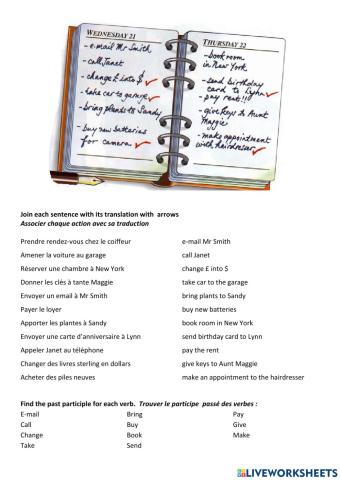 WEDNESDAY 21
- e-mail Mr Smith
- call Janet
- change £ into $
- take car to garage
- bring plants to Sandy
- buy new batteries
for camera
THURSDAY 22
- book room
in New York
- send birthday
card to Lynn
- pay rent!!!
- give keys to Aunt
Maggie
- make appointment
with hairdresser
Join each sentence with its translation with arrows
Associer chaque action avec sa traduction
Prendre rendez-vous chez le coiffeur
e-mail Mr Smith
Amener la voiture au garage
call Janet
Réserver une chambre à New York
change £ into $
Donner les clés à tante Maggie
take car to the garage
Envoyer un email à Mr Smith
bring plants to Sandy
Payer le loyer
buy new batteries
Apporter les plantes à Sandy
book room in New York
Envoyer une carte d'anniversaire à Lynn
send birthday card to Lynn
Appeler Janet au téléphone
pay the rent
Changer des livres sterling en dollars
give keys to Aunt Maggie
Acheter des piles neuves
make an appointment to the hairdresser
Find the past participle for each verb. Trouver le participe passé des verbes :
E-mail Bring Pay
Call Buy Give
Change Book Make
Take Send
LIVEWORKSHEETS